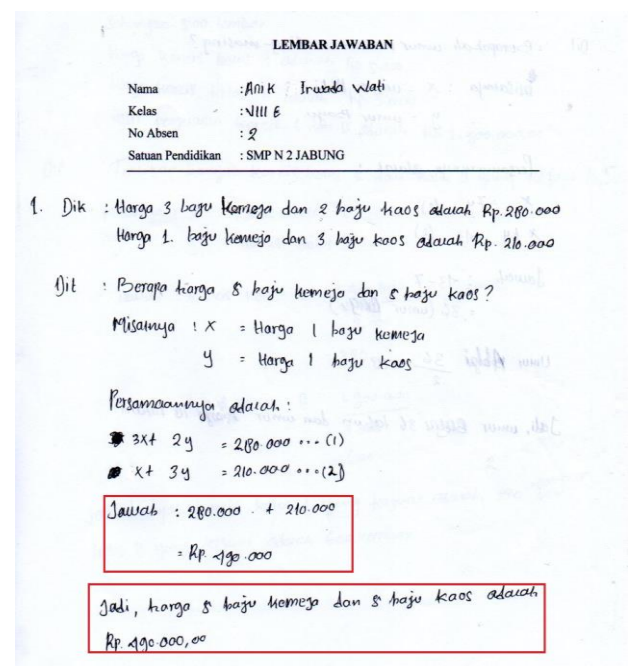 LEMBAR JAWABAN
Nama : Anik Irwada Wati
Kelas : VIII E
No Absen : 2
Satuan Pendidikan : SMP N 2 JABUNG
1. Dik : Harga 3 baju kemeja dan 2 baju kaos adalah Rp. 280.000
Harga 1. baju kemeja dan 3 baju kaos adalah Rp. 210.000
Dit : Berapa harga 5 baju kemeja dan 5 baju kaos?
Misalnya : x = Harga 1 baju kemeja
y = Harga 1 baju kaos
Persamaannya adalah :
3x + 2y = 280.000 ... (1)
x + 3y = 210.000 ... (2)
Jawab : 280.000 + 210.000
= Rp. 490.000
Jadi, harga 5 baju kemeja dan 5 baju kaos adalah
Rp. 490.000,00